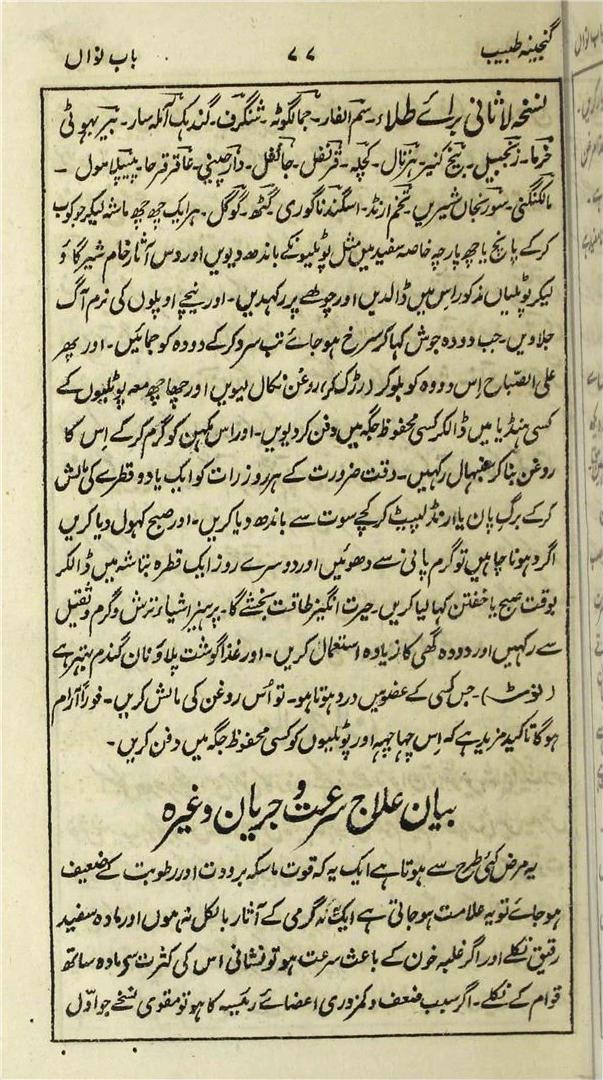 گنجینہ طبیب ۷۷ باب نواں
نسخہ لاثانی برائے طلاء۔ سم الفار۔ جمالگوٹہ۔ شنگرف۔ گندہک آملہ سار۔ بیر بہوٹی
خرما۔ زنجبیل۔ بیخ کنیر۔ ہڑتال۔ کچلہ۔ قرنفل۔ جائفل۔ دارچینی۔ عاقرقرحا۔ پیپلامول۔
مالکنگنی۔ سورنجاں شیریں۔ تخم ارنڈ۔ اسگندناگوری۔ گٹھ۔ گوگل۔ ہر ایک چھ چھ ماشہ لیکر جوکوب
کرکے پانچ یا چھ پارچہ خاصہ سفید میں مثل پوٹلیونکے باندھ دیویں اور دس آثار خام شیر گاؤ
لیکر پوٹلیاں مذکور اس میں ڈالدیں اور چولھے پر رکہدیں۔ اور نیچے اوپلوں کی نرم آگ
جلاویں۔ جب دودہ جوش کہا کر سرخ ہوجائے تب سرد کرکے دودہ کو جمائیں۔ اور پھر
علی الصباح اس دودہ کو بلوکر (رڑک کر) روغن نکال لیویں اور چھاچھ معہ پوٹلیوں کے
کسی ہنڈیا میں ڈالکر کسی محفوظ جگہ میں دفن کر دیویں۔ اور اس مکہن کو گرم کرکے اس کا
روغن بناکر سنبہال رکہیں۔ وقت ضرورت کے ہر روز رات کو ایک یا دو قطرے کی مالش
کرکے برگ پان یا ارنڈ لپیٹ کر کچے سوت سے باندھ دیا کریں۔ اور صبح کہول دیا کریں
اگر دہونا چاہیں تو گرم پانی سے دھوئیں اور دوسرے روز ایک قطرہ بتاشہ میں ڈالکر
بوقت صبح یا خفتن کہا لیا کریں۔ حیرت انگیز طاقت بخشے گا۔ پرہیز اشیاء ترش وگرم وثقیل
سے رکہیں اور دودہ گھی کا زیادہ استعمال کریں۔ اور غذا گوشت پلاؤ نان گندم بہتر ہے
(نوٹ)۔ جس کسی کے عضو میں درد ہوتا ہو۔ تو اُس روغن کی مالش کریں۔ فوراً آرام
ہوگا تاکید مزید ہے کہ اس چہاچہہ اور پوٹلیوں کو کسی محفوظ جگہ میں دفن کریں۔
بیان علاج سرعت و جریان وغیرہ
یہ مرض کئی طرح سے ہوتا ہے ایک یہ کہ قوت ماسکہ برودت اور رطوبت کے ضعیف
ہوجائے تو یہ علامت ہوجاتی ہے ایک تو گرمی کے آثار بالکل نہ ہوں اور مادہ سفید
رقیق نکلے اور اگر غلبہ خون کے باعث سرعت ہو تو نشانی اس کی کثرت سی مادہ ساتھ
قوام کے نکلے۔ اگر سبب ضعف و کمزوری اعضائے رئیسہ کا ہو تو مقوی نسخے جو اوّل